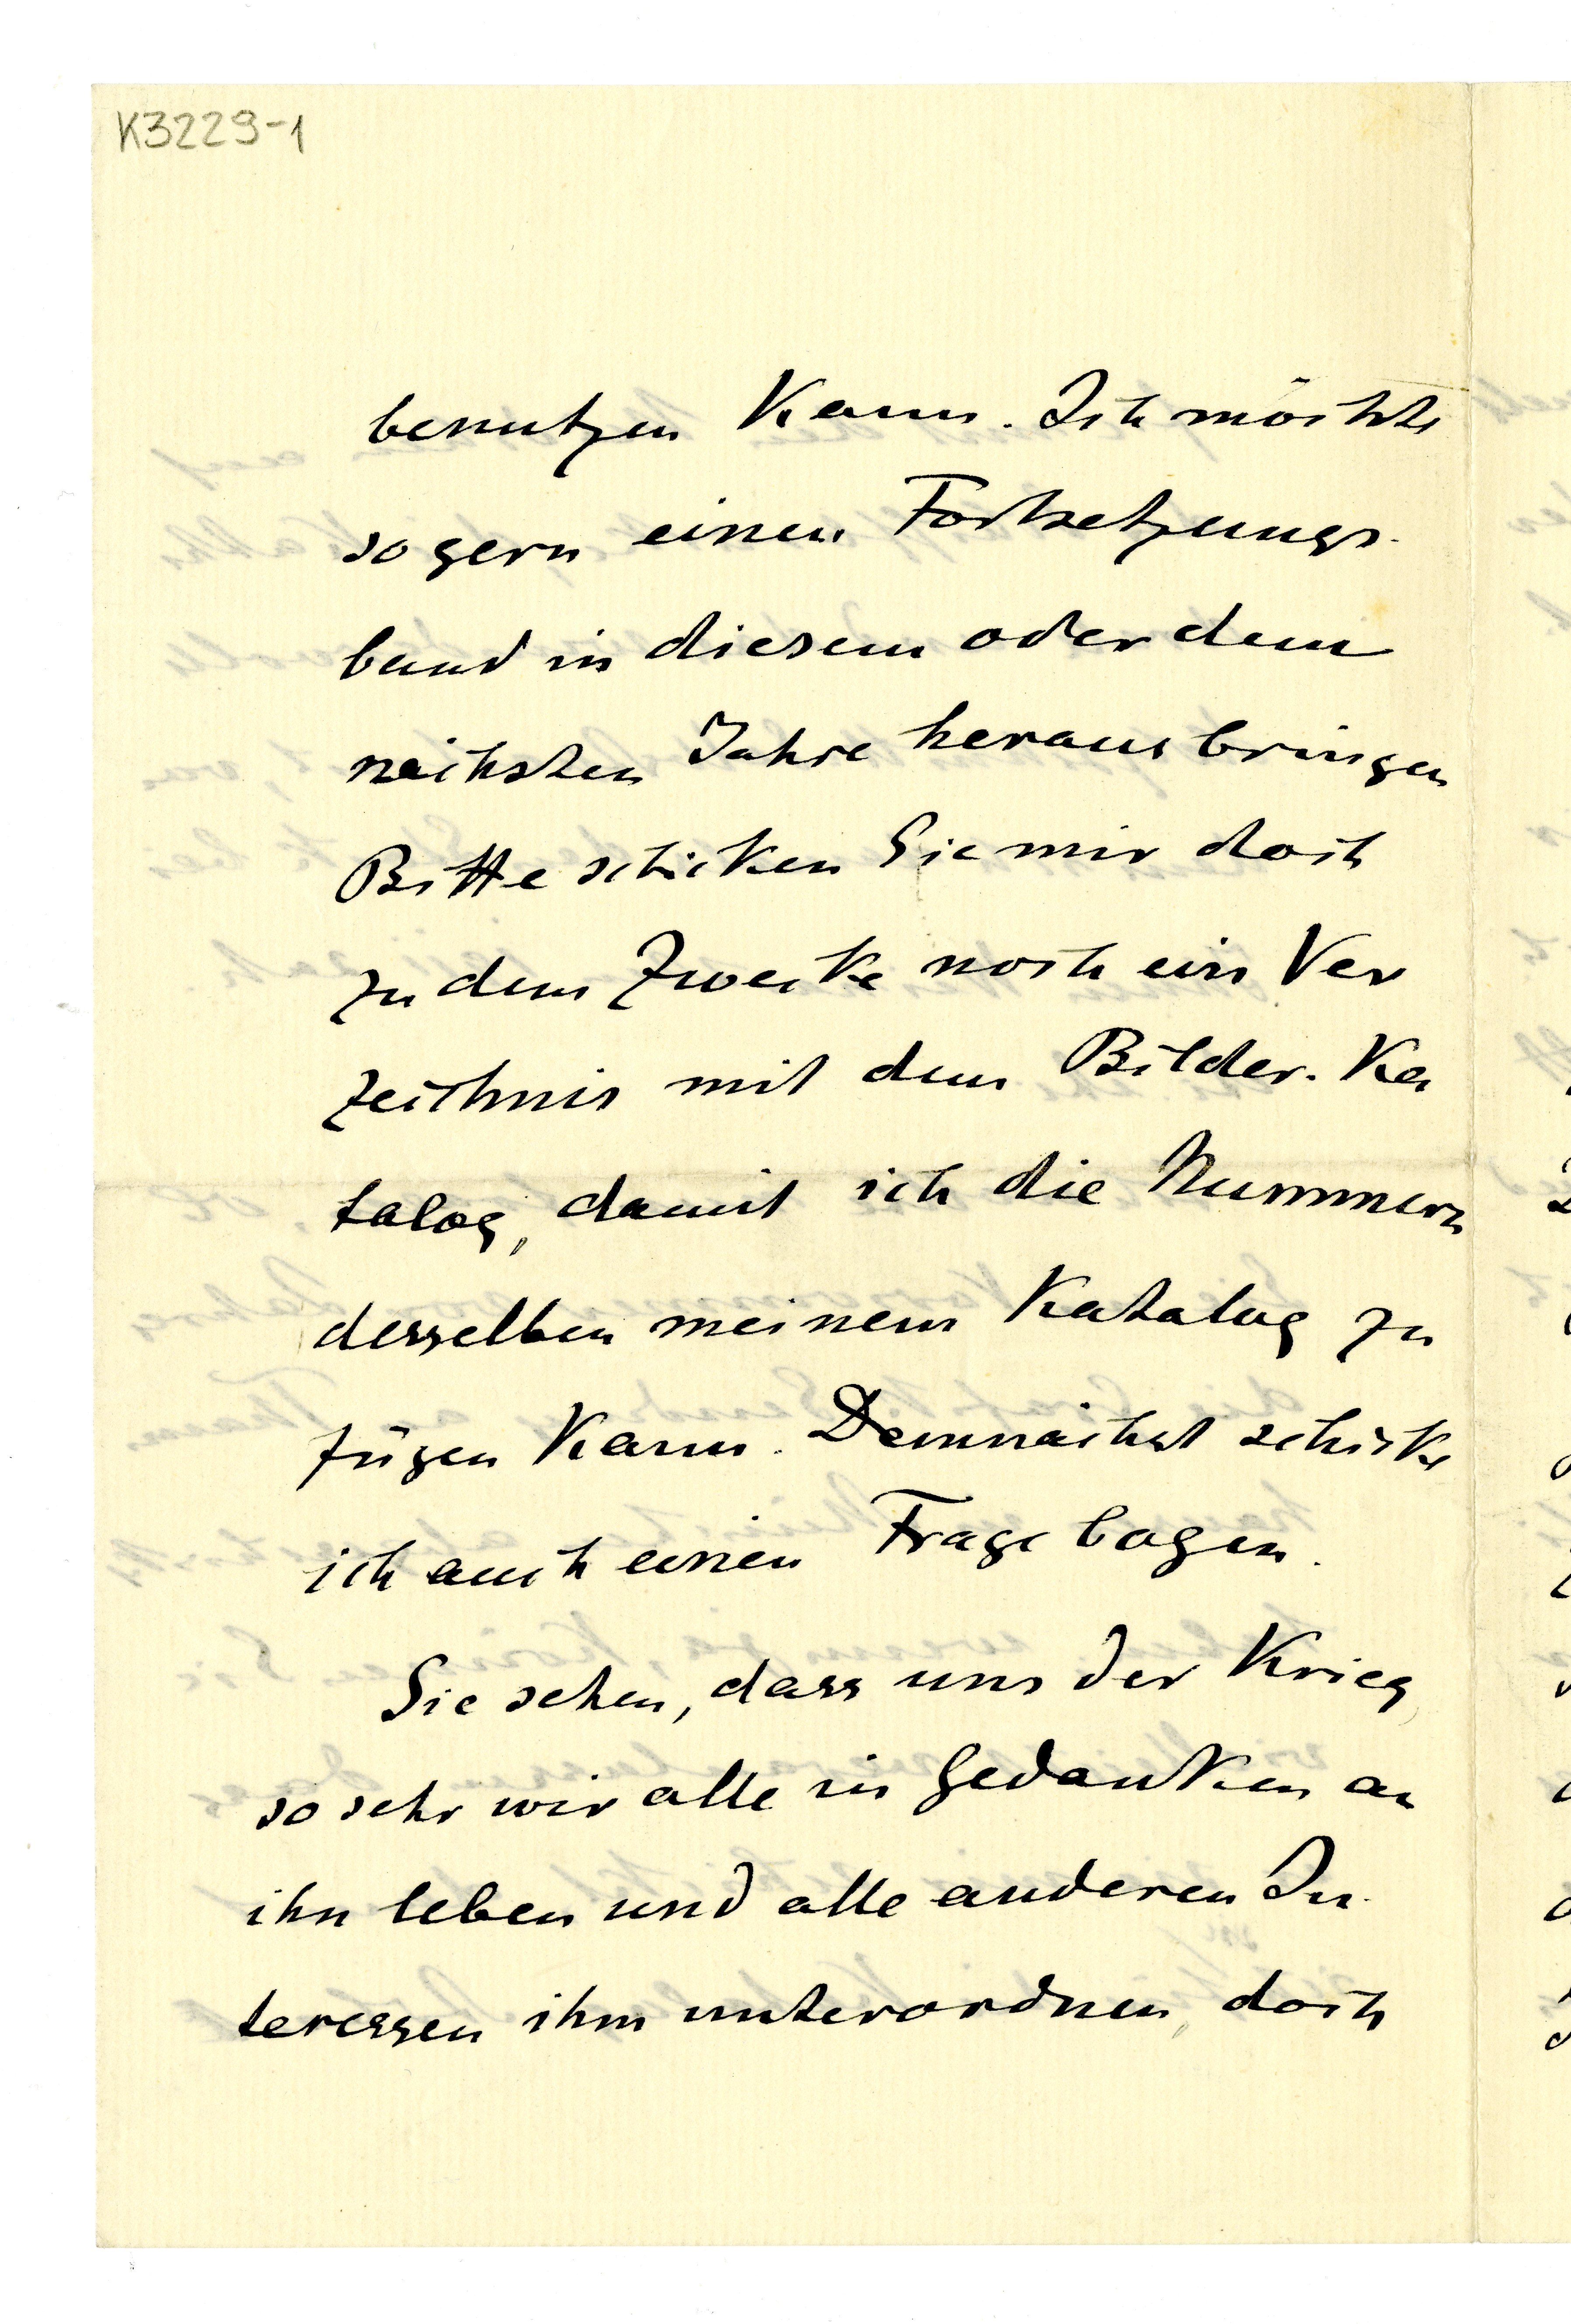 K3229-1
benutzen kann. Ich möchte
so gern einen Fortsetzungs-
band in diesem oder dem
nächsten Jahre herausbringen
Bitte schicken Sie mir doch
zu dem Zwecke noch ein Ver
zeichnis mit dem Bilder-Ka
talog, damit ich die Nummern
desselben meinem Katalog zu
fügen kann. Demnächst schicke
ich auch einen Fragebogen.
Sie sehen, dass uns der Krieg
so sehr wir alle in Gedanken an
ihn leben und alle anderen In-
teressen ihm unterordnen, doch